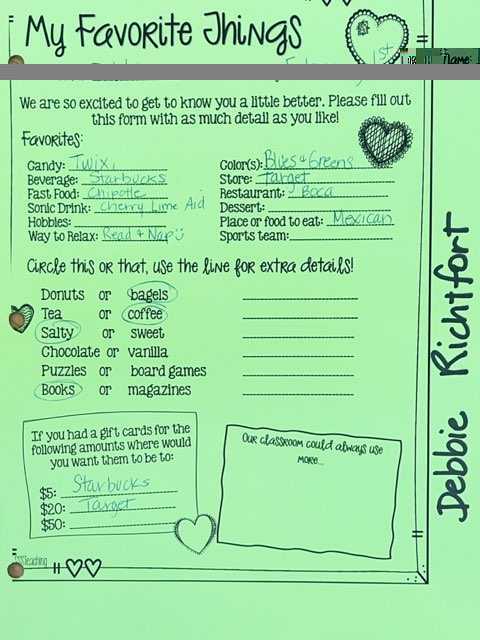 My Favorite Things
1st
Name:
We are so excited to get to know you a little better. Please fill out
this form with as much detail as you like!
Favorites:
Candy: Twix,
Beverage: Starbucks
Fast Food: Chipotle
Sonic Drink: Cherry Lime Aid
Hobbies:
Way to Relax: Read & Nap
Color(s): Blues & Greens
Store: Target
Restaurant: Boca
Dessert:
Place or food to eat: Mexican
Sports team:
Circle this or that, use the line for extra details!
Donuts or bagels
Tea or coffee
Salty or sweet
Chocolate or vanilla
Puzzles or board games
Books or magazines
If you had a gift cards for the
following amounts where would
you want them to be to:
$5: Starbucks
$20: Target
$50:
Our classroom could always use
more...
Debbie Richtfort